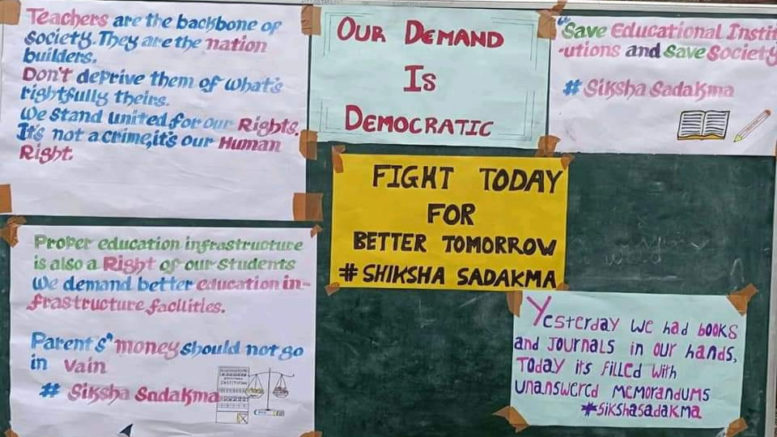 Teachers are the backbone of
society. They are the nation
builders.
Don't deprive them of what's
rightfully theirs.
We stand united for our Rights.
It's not a crime, it's our Human
Right.
OUR DEMAND
IS
DEMOCRATIC
"Save Educational Instit
-utions and Save Society
# Siksha Sadakma
FIGHT TODAY
FOR
BETTER TOMORROW
# SHIKSHA SADAKMA
Proper education infrastructure
is also a Right of our Students
We demand better education in-
frastructure facilities.
Parent's" money should not go
in vain
# Siksha Sadakma
Yesterday we had books
and Journals in our hands,
Today its filled with
unanswered memorandums
#sikshasadakma